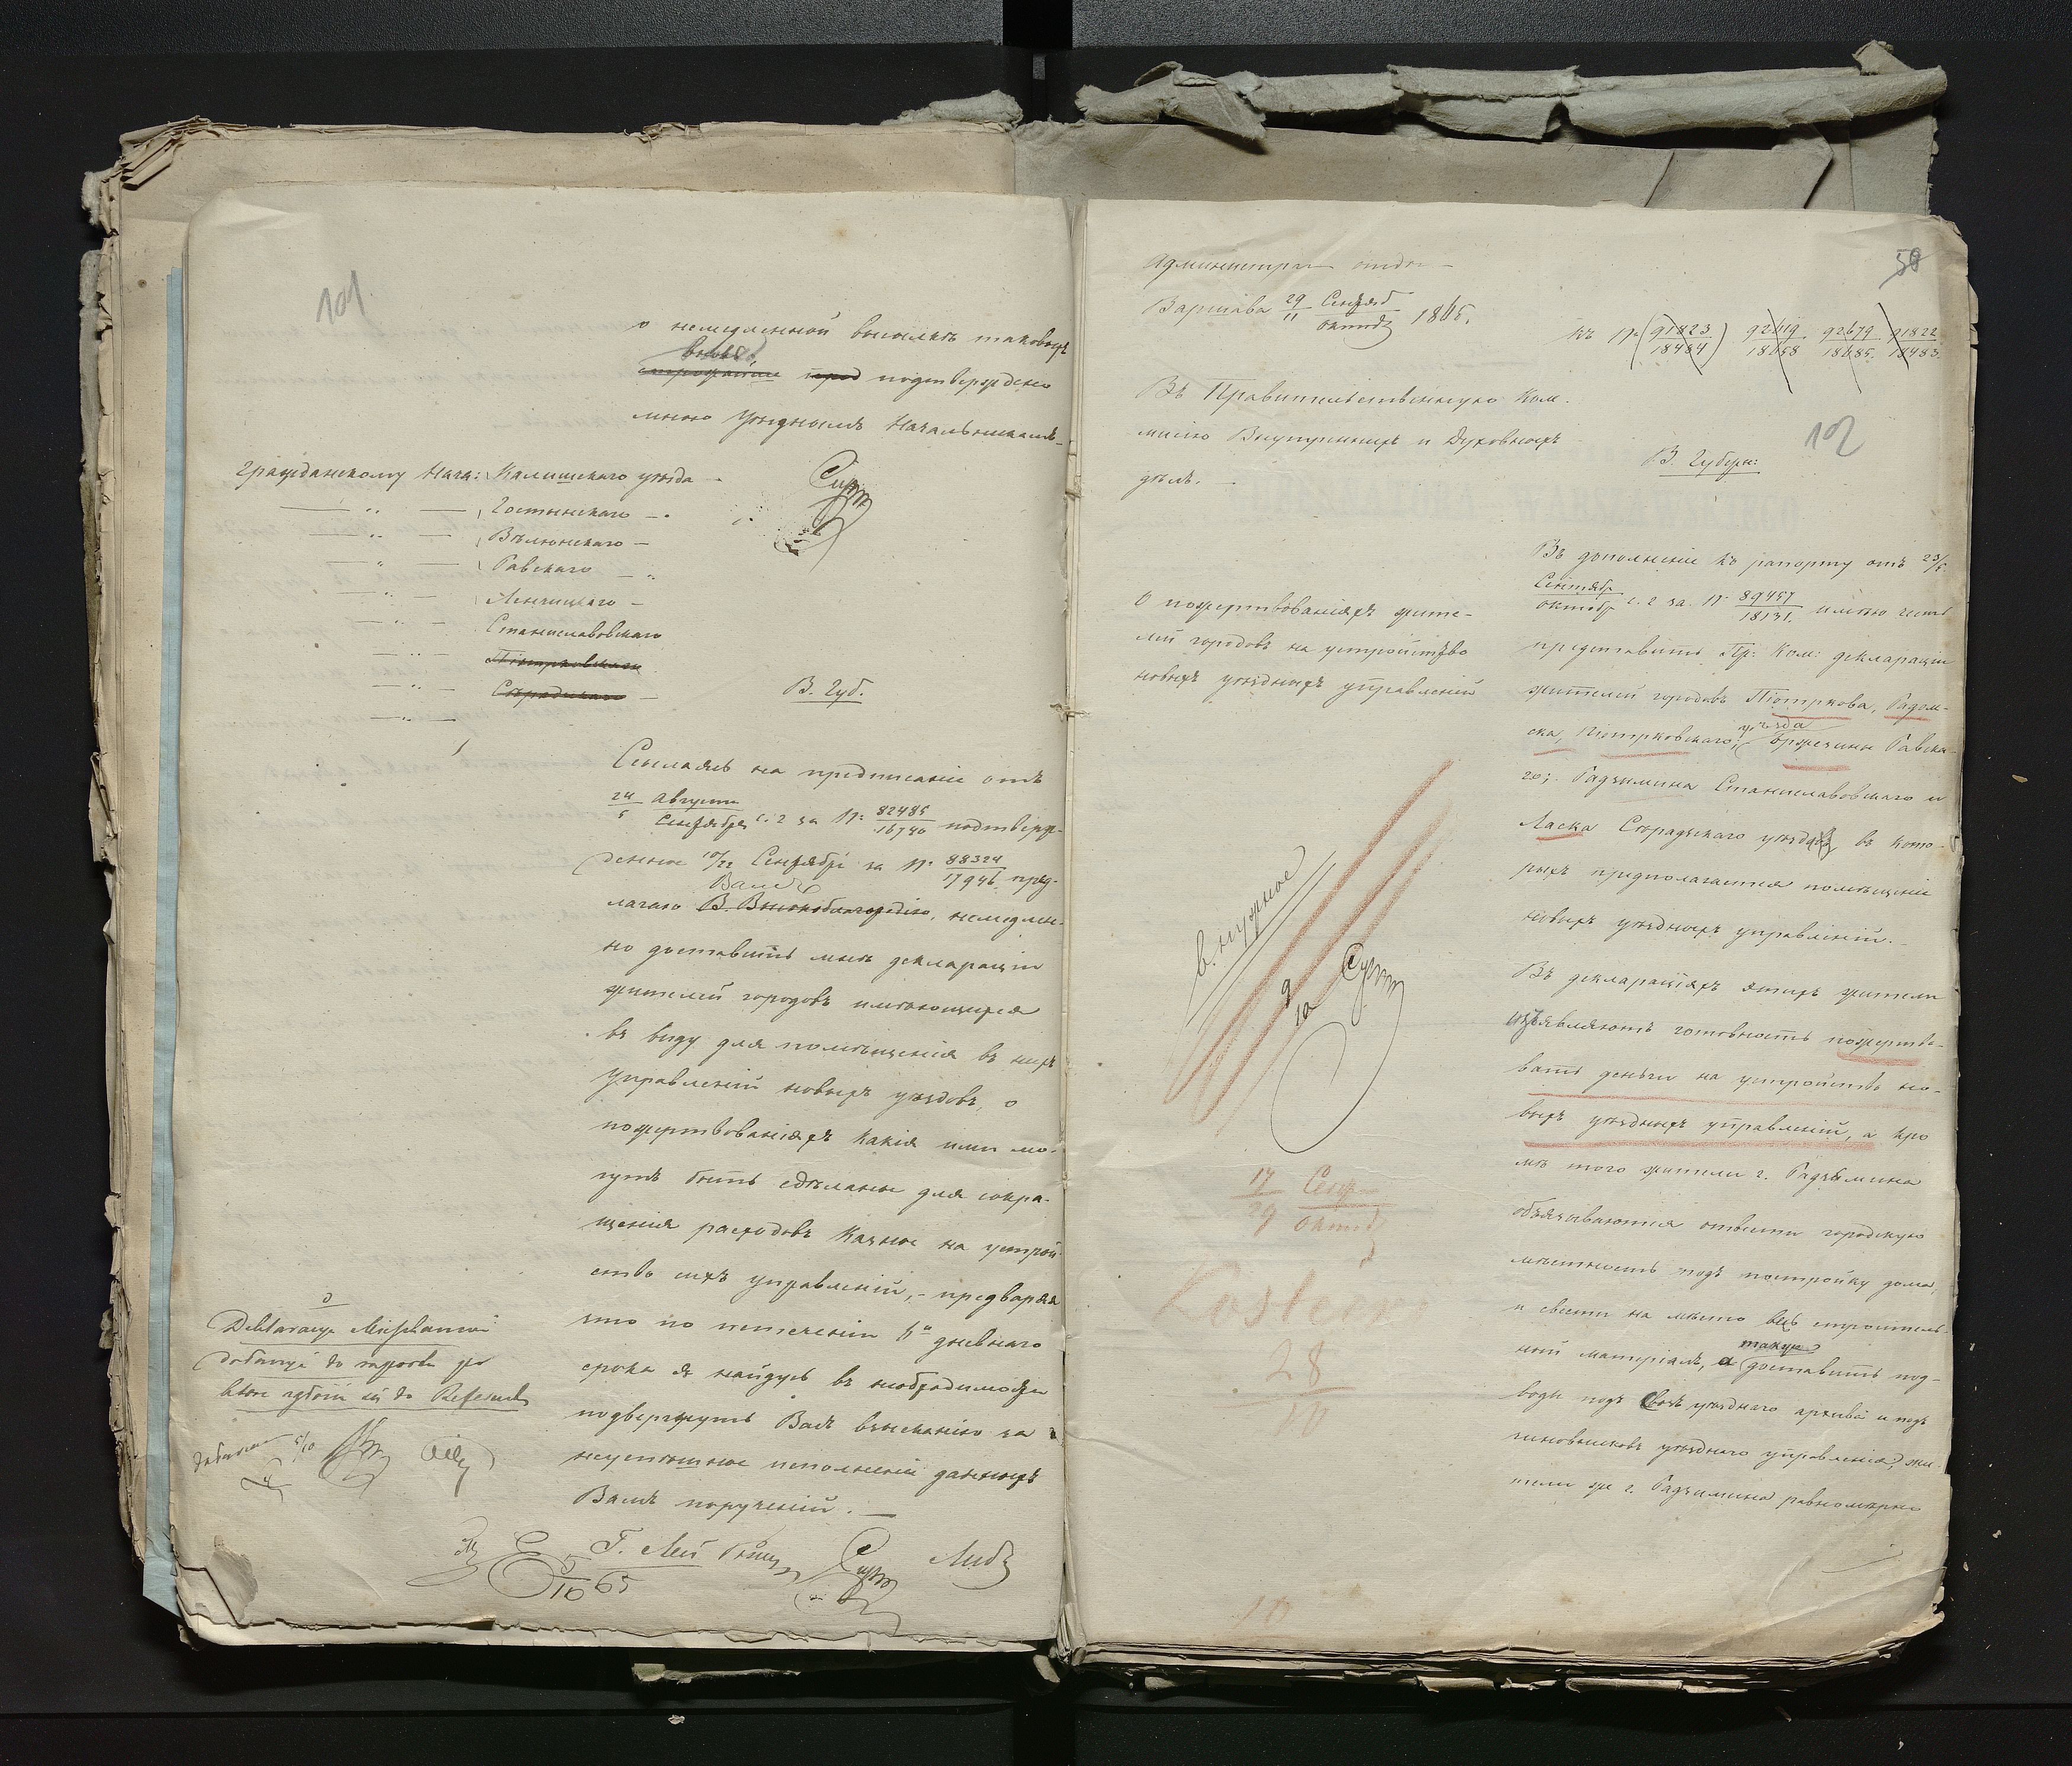 101
о немедленной высылкѣ таковыхъ
подтверждено
мною Уѣзднымъ Начальникамъ.
Гражданскому Нача: Калишскаго уѣзда
Гостынскаго
Вѣлюнскаго
Равскаго
Ленчицкаго
Станиславовскаго
Піотрковскаго
Сѣрадзкаго
В. Губ.
Ссылаясь на предписаніе отъ
24/5 Августа/Сентября с. г. за № 82485/16740 подтверж-
денное 10/22 Сентября за № 88324/17946 пред-
Вамъ
лагаю В. Высокоблагородію, немедлен-
но доставить мнѣ декларацiи
жителей городовъ имѣющихся
въ виду для помѣщенія въ нихъ
Управленій новыхъ уѣздовъ, о
пожертвованіяхъ какія ими мо-
гутъ быть сдѣланы для сокра-
щенія расходовъ Казны на устрой-
ство сихъ управленій, - предваряя
что по истеченіи дневнаго
срока я найдусь въ необходимости
подвергнуть Васъ взысканію за
неуспѣшное исполненіе данныхъ
Вамъ порученій. —
do raportu
5/10 65
50
Администрат отдѣ
Варшава 29/11 Сентяб/октяб 1865.
къ № (91823/18484) 92619/18658 92679/18685. 91822/18483
Въ Правительственную Ком.
мисію Внутреннихъ и Духовныхъ
дѣлъ. —
102
В. Губерн:
О пожертвованіяхъ жите-
лей городовъ на устройство
новыхъ уѣздныхъ управленій
Въ дополненіе къ рапорту отъ 23/5
Сентябр/октябр с. г. за № 89457/18131. имѣю честь
представить Пр: Ком: деклараціи
жителей городовъ Піотркова, Радом-
уѣзда
ска, Піотрковскаго; Бржезины Равска-
го; Радзимина Станиславовскаго и
Ласка Сѣрадзскаго уѣздовъ въ кото-
рыхъ предполагается помѣщеніе
новыхъ уѣздныхъ управленій. —
Въ деклараціяхъ этихъ жители
изъявляютъ готовность пожертво-
вать деньги на устройство но-
выхъ уѣздныхъ управленій, а кро
мѣ того жители г. Радзимина
обязываются отвести городскую
мѣстность подъ постройку дома,
и свести на мѣсто весь строитель-
также
ный матеріалъ, а доставить под-
воды подъ своз уѣзднаго архива и подъ
чиновниковъ уѣзднаго управленія, жи-
тели же г. Радзимина равномѣрно
В. нужное
17/29 Сент/октяб
Kostecki
28/10
10